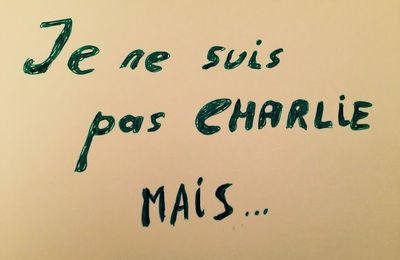 Je ne suis
pas CHARLIE
MAiS...